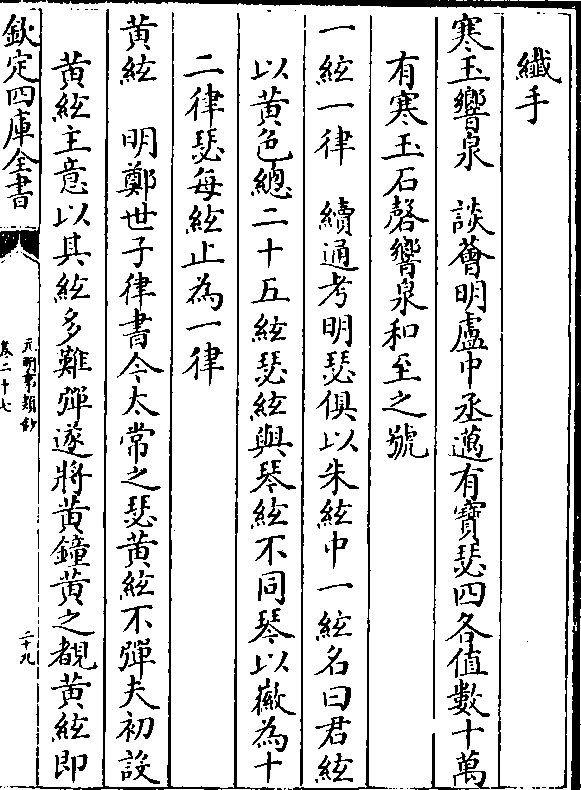 纎手
寒玉響泉　談薈明盧中丞邁有寶瑟四各值數十萬
有寒玉石磬響泉和至之號
一絃一律　續通考明瑟俱以朱絃中一絃名曰君絃
以黄色總二十五絃瑟絃與琴絃不同琴以徽為十
二律瑟每絃止為一律
黄絃　明鄭世子律書今太常之瑟黄絃不彈夫初設
黄絃主意以其絃多難彈遂將黄鐘黄之覩黄絃即
欽定四庫全書
元明事類鈔
卷二十七
二十九